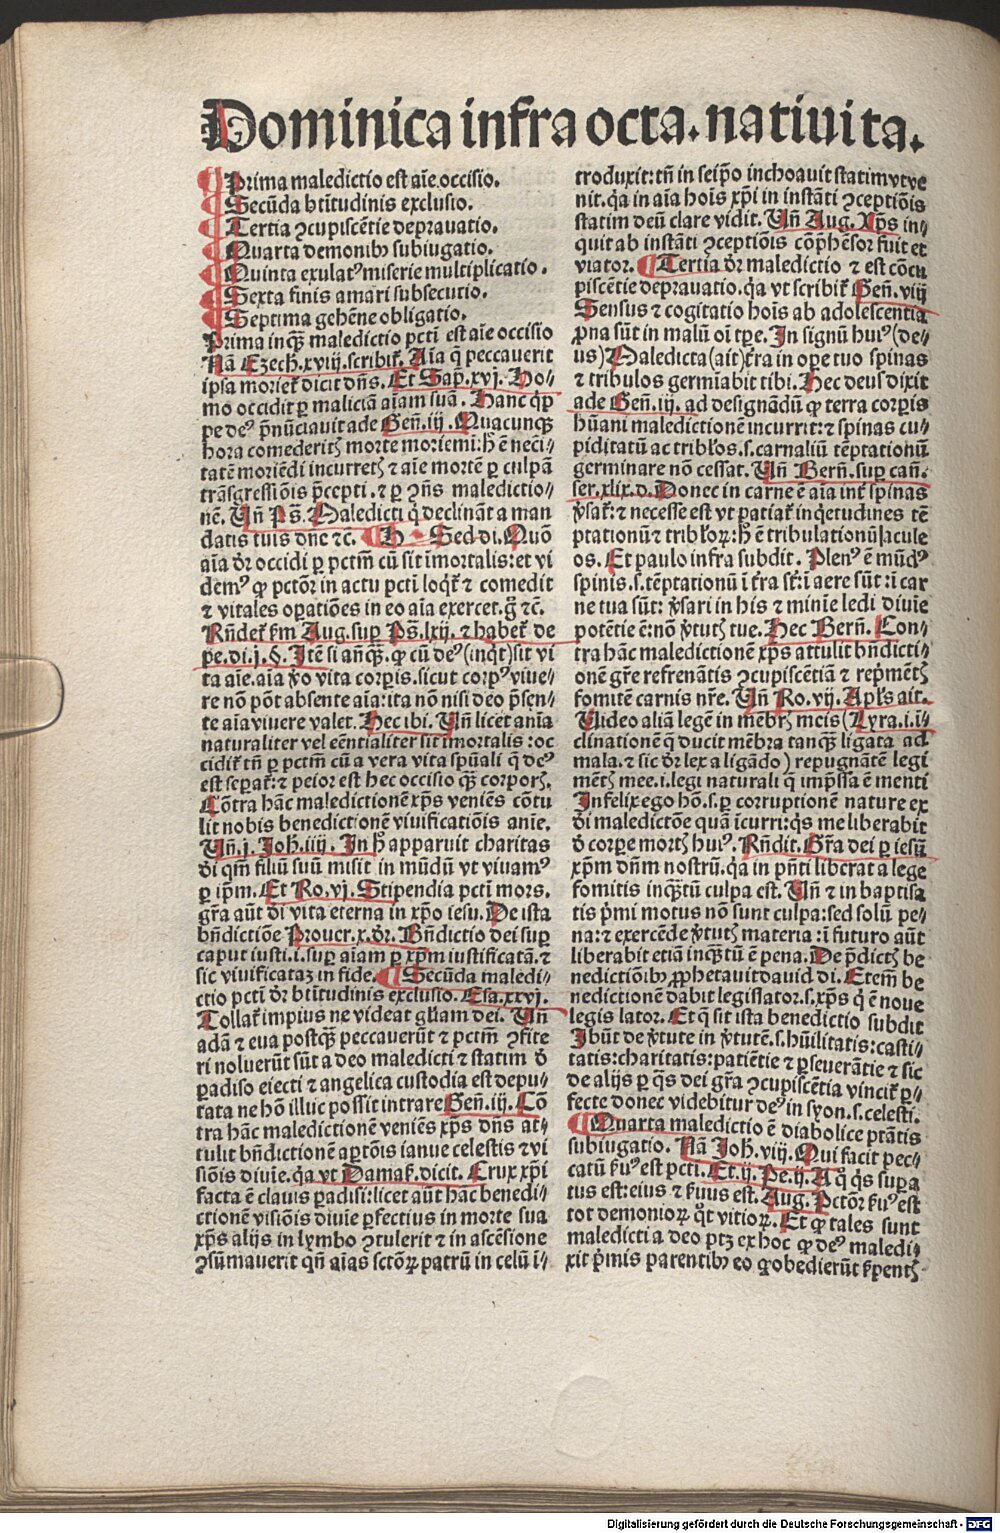 Dominica infra octa. natiuita.
Prima maledictio est aīe occisio.
Secūda btītudinis exclusio.
Tertia ꝯcupiscētie deprauatio.
Quarta demonibꝫ subiugatio.
Quinta exulatꝰ miserie multiplicatio.
Sexta finis amari subsecutio.
Septima gehēne obligatio.
Prima inqꝫ maledictio pctī est aīe occisio
Nā Ezech. xviij. scribit̄. Aīa q̄ peccauerit
ipsa moriet̄ dicit dn̄s. Et Sap̄. xvj. Ho⸗
mo occidit ꝑ maliciā aīam suā. Hanc qͥp̄
pe deꝰ p̄nūciauit ade Gen̄. iij. Quacunqꝫ
hora comederitꝭ morte moriemi: h̄ ē necī
tatē moriēdi incurretꝭ ⁊ aīe mortē ꝑ culpā
trāsgressiōis p̄cepti. ⁊ ꝑ ꝯn̄s maledictio⸗
nē. Un̄ Ps̄. Maledicti qͥ declināt a man
datis tuis dn̄e ⁊c̄. H Sed di. Quō
aīa dr̄ occidi ꝑ pctm̄ cū sit īmortalis: et vi
demꝰ ꝙ pctōr in actu pcti loqͥt̄ ⁊ comedit
⁊ vitales oꝑatiōes in eo aīa exercet. g̊ ⁊c̄.
Rn̄det̄ ẜm Aug. suꝑ Ps̄. lxij. ⁊ habet̄ de
pe. di. j. §. Itē si anqꝫ. ꝙ cū deꝰ (inqͥt) sit vi
ta aīe. aīa v̊o vita corꝑis. sicut corpꝰ viue⸗
re nō pōt absente aīa: ita nō nisi deo p̄sen⸗
te aīa viuere valet. Hec ibi. Un̄ licet anīa
naturaliter vel eēntialiter sit īmortalis: oc
cidit̄ tn̄ ꝑ pctm̄ cū a vera vita spūali q̄ deꝰ
est seꝑat̄: ⁊ peior est hec occisio qꝫ corporꝭ.
Cōtra hāc maledictionē xp̄s veniēs cōtu
lit nobis benedictionē viuificatiōis anīe.
Un̄. j. Joh̄. iiij. In hͦ apparuit charitas
dī qm̄ filiū suū misit in mūdū vt viuamꝰ
ꝑ ip̄m. Et Ro. vj. Stipendia pcti mors.
gr̄a aūt dī vita eterna in xp̄o iesu. De ista
bn̄dictiōe Prouer. x. dr̄. Bn̄dictio dei suꝑ
caput iusti. i. suꝑ aīam ꝑ xp̄m iustificatā. ⁊
sic viuificataꝫ in fide. Secūda maledi⸗
ctio pcti dr̄ btītudinis exclusio. Esa. xxvj.
Tollat̄ impius ne videat gl̄iam dei. Un̄
adā ⁊ eua postqꝫ peccauerūt ⁊ pctm̄ ꝯfite
ri noluerūt sūt a deo maledicti ⁊ statim d̄
ꝑadiso eiecti ⁊ angelica custodia est depu⸗
tata ne hō illuc possit intrare Gen̄. iij. Cō
tra hāc maledictionē veniēs xp̄s dn̄s at⸗
tulit bn̄dictionē aꝑtōis ianue celestis ⁊ vi
siōis diuīe. qͣ vt Damas̄. dicit. Crux xp̄i
facta ē clauis ꝑadisi: licet aūt hāc benedi⸗
ctionē visiōis diuīe ꝑfectius in morte sua
xp̄s alijs in lymbo ꝯtulerit ⁊ in ascēsione
ꝯsūmauerit qn̄ aīas sctōꝝ patrū in celū ī⸗
troduxit: tn̄ in seip̄o inchoauit statim vt ve
nit. qͣ in aīa hoīs xp̄i in instāti ꝯceptiōis
statim deū clare vidit. Un̄ Aug. Xp̄s in⸗
quit ab instāti ꝯceptiōis cōp̄hēsor fuit et
viator. Tertia dr̄ maledictio ⁊ est cōcu
piscētie deprauatio. qͣ vt scribit̄ Gen̄. viij
Sensus ⁊ cogitatio hoīs ab adolescentia
ꝓna sūt in malū oī tp̄e. In signū huiꝰ (de⸗
us) Maledicta (ait) t̄ra in oꝑe tuo spinas
⁊ tribulos germīabit tibi. Hec deus dixit
ade Gen̄. iij. ad designādū ꝙ terra corꝑis
hūani maledictionē incurrit: ⁊ spinas cu⸗
piditatū ac tribl̄os. s. carnaliū tēptationū
germinare nō cessat. Un̄ Bern̄. suꝑ can̄.
ser. xlix. d. Donec in carne ē aīa int̄ spinas
v̊sat̄: ⁊ necesse est vt patiat̄ inqͥetudines tē
ptationū ⁊ tribl̄oꝝ: h̄ ē tribulationū acule
os. Et paulo infra subdit. Plenꝰ ē mūdꝰ
spinis. s. tēptationū ī t̄ra st̄: ī aere sūt: ī car
ne tua sūt: v̊sari in his ⁊ minīe ledi diuīe
potētie ē: nō v̊tutꝭ tue. Hec Bern̄. Con⸗
tra hāc maledictionē xp̄s attulit bn̄dicti⸗
onē gr̄e refrenātis ꝯcupiscētiā ⁊ rep̄mētꝭ
fomitē carnis nr̄e. Un̄ Ro. vij. Apl̄s ait.
Uideo aliā legē in mēbrꝭ meis (Lyra. i. ī⸗
clinationē q̄ ducit mēbra tanqꝫ ligata ad
mala. ⁊ sic dr̄ lex a ligādo) repugnātē legi
mētꝭ mee. i. legi naturali q̄ imp̄ssa ē menti
Infelix ego hō. s. ꝑ corruptionē nature ex
dī maledictōe quā īcurri: qͥs me liberabit
d̄ corꝑe mortꝭ huiꝰ. Rn̄dit. Gr̄a dei ꝑ iesū
xp̄m dn̄m nostrū. qͣ in pn̄ti liberat a lege
fomitis inqꝫtū culpa est. Un̄ ⁊ in baptisa
tis pͥmi motus nō sunt culpa: sed solū pe⸗
na: ⁊ exercēde v̊tutꝭ materia: ī futuro aūt
liberabit etiā inqꝫtū ē pena. De p̄dictꝭ be
nedictiōibꝫ ꝓphetauit dauid di. Etem̄ be
nedictionē dabit legislator. s. xp̄s q̄ ē noue
legis lator. Et q̄ sit ista benedictio subdit
Ibūt de v̊tute in v̊tutē. s. hūilitatis: casti⸗
tatis: charitatis: patiētie ⁊ ꝑseuerātie ⁊ sic
de alijs ꝑ qͣs dei gr̄a ꝯcupiscētia vincit̄ ꝑ⸗
fecte donec videbitur deꝰ in syon. s. celesti.
Quarta maledictio ē diabolice p̄tātis
subiugatio. Nā Joh̄. viij. Qui facit pec⸗
catū ẜuꝰ est pcti. Et. ij. Pe. ij. A qͦ qͥs suꝑa
tus est: eius ⁊ ẜuus est. Aug. Pctōr ẜuꝰ est
tot demonioꝝ qͦt vitioꝝ. Et ꝙ tales sunt
maledicti a deo ptꝫ ex hoc ꝙ deꝰ maledi⸗
xit pͥmis parentibꝫ eo ꝙ obedierūt ẜpentꝭ
Digitalisierung gefördert durch die Deutsche Forschungsgemeinschaft - DFG